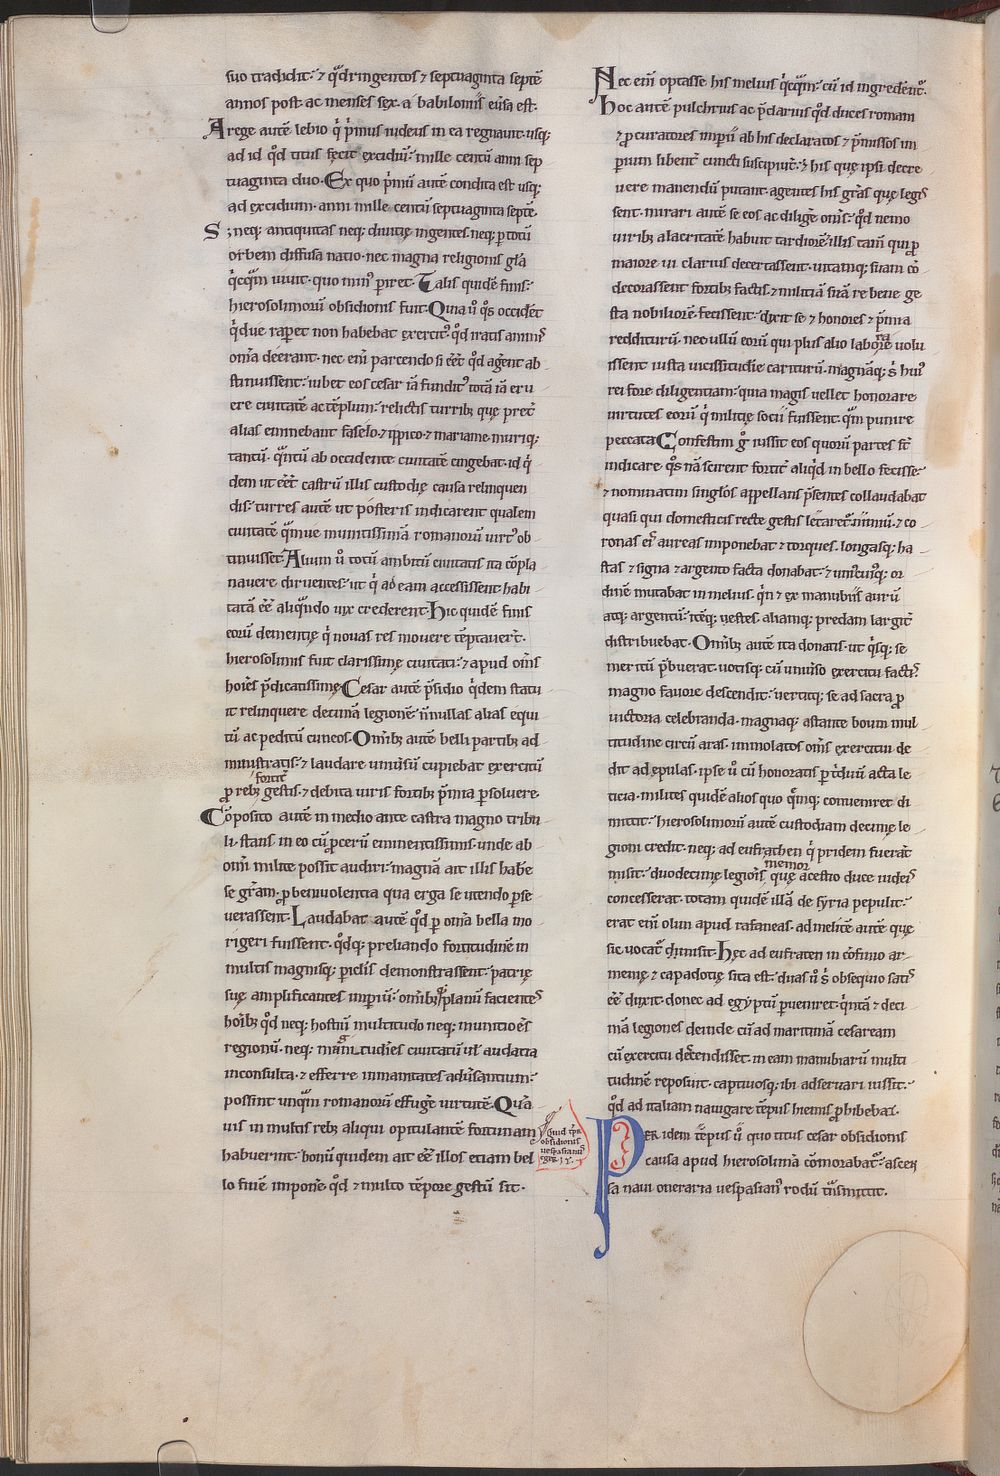 suo tradidit. ⁊ q̃dringentos ⁊ septuaginta septē
annos post. ac menses sex. a babiloniis eũsa est.
A rege autē lebio q̇ p̃mus iudeus in ea regnauit. usq;
ad id qd̓ titus fecit excidiũ. mille centũ anni sep
tuaginta duo. Ex quo p̃mũ autē condita est usq;
ad excidium. anni mille centũ septuaginta septē.
S; neq; antiquitas neq; diuitię ingentes. neq; p totũ
orbem diffusa natio. nec magna religionis gl̃a
q̇cq̃m iuuit. quo min᷒ piret. Talis quidē finis.
hierosolimorũ obsidionis fuit. Quia ũ q̊s occidēt
q̇d ue rapet non habebat exercit᷒. qd̓ iratis animis
om̃a deerant. nec eni parcendo si eēt qd̓ agent ab
stinuissent. iubet eos cesar iā fundit᷒ totā iā eru
ere ciuitatē ac tēplum. relictis turrib; quę pret̃
alias eminebant faselo. ⁊ ippico. ⁊ mariame. muriq;
tantũ. q̃ntũ ab occidente ciuitatē cingebat. id q̇
dem ut eēt castrũ illis custodię causa relinquen
dis. turres autē ut posteris indicarent qualem
ciuitatē q̃mue munitissimā romanorũ uirt᷒ ob
tinuisset. Alium ũ totũ ambitũ ciuitatis ita cōpla
nauere diruentes. ut q̇ ad eam accessissent. habi
tatā eē aliq̃ndo uix crederent. Hic quidē finis
eorũ dementię q̇ nouas res mouere tēptauert̃.
hierosolimis fuit clarissimę ciuitati. ⁊ apud om̃s
hoīes p̃dicatissimę. Cesar autē p̃sidio q̇dem statu
it relinquere decimā legionē. ñnullas alias equi
tũ ac peditũ cuneos. Omib; autē belli partib; ad
ministratis. ⁊ laudare uniũsũ cupiebat exercitũ
fortit̃
p reb; gestis. ⁊ debita uiris fortib; p̃mia psoluere.
Cōposito autē in medio ante castra magno tribu
li. stans in eo cũ pcerũ eminentissimis. unde ab
omi milite possit audiri. magnā ait illis habe
se gr̃am. p beniuolentia qua erga se utendo pse
uerassent. Laudabat autē qd̓ p om̃a bella mo
rigeri fuissent. qd̓q; preliando fortitudinē in
multis magnisq; piclis demonstrassent. patrię
suę amplificantes imperiũ. omib; q; planũ facientes
hoĩb; qd̓ neq; hostiũ multitudo neq; munitioēs
regionũ. neq; magnitudīes ciuitatũ uł audacia
inconsulta. ⁊ efferre inmanitates aduersantium.
possint unq̃m romanorũ effugē uirtutē. Quā
uis in multis reb; aliqui opitulantē fortunam
habuerint. bonũ quidem ait eē illos etiam bel
lo finē imponē. qd̓ ⁊ multo tēpore gestũ sit.
Nec enī optasse his melius q̇cq̃m. cũ id ingredent᷒.
Hoc autē pulchrius ac p̃clarius qd̓ duces romani
⁊ pcuratores imperii ab his declaratos ⁊ p̃missos im
perium libent̃ cuncti suscipiũt. ⁊ his quę ipsi decre
uere manendũ putant. agentes his gr̃as quę legis
sent. mirari autē se eos ac diligē om̃s. qd̓ nemo
uirib; alacritatē habuit tardiorē. illis tam̃ qui p
maiore ui clarius decertassent. uitamq; suam cō
decorassent fortib; factis. ⁊ militiā suā re bene ge
sta nobiliorē fecissent. dixit se ⁊ honores ⁊ p̃mia
redditurũ. nec ullũ eorũ qui plus alio laborare uolu
issent iusta uicissitudine cariturũ. magnāq; s; hui᷒
rei fore diligentiam. quia magis uellet honorare
uirtutes eorũ q̇ militię socii fuissent. q̃m punire
peccata. Confestim g̊ iussit eos quorũ partes fr̃t
indicare. q̊s nā scirent fortit̃ aliq̇d in bello fecisse.
⁊ nominatim singlos appellans p̃sentes collaudabat
quasi qui domesticis recte gestis lętaret̃ nimiũ. ⁊ co
ronas eis aureas imponebat. ⁊ torques. longasq; ha
stas ⁊ signa ⁊ argento facta donabat. ⁊ unicuiq; or
dinē mutabat in melius. q̇n ⁊ ex manubiis aurũ
atq; argentũ. itēq; uestes. aliamq; predam largit̃
distribuebat. Omib; autē ita donatis. ut q̇sq; se
meritũ p̃buerat. uotisq; cũ uniũso exercitu factis.
magno fauore descendit. uertitq; se ad sacra p
uictoria celebranda. magnaq; astante boum mul
titudine circũ aras. immolatos om̃s exercitui de
dit ad ępulas. ipse ũ cũ honoratis p triduũ acta le
ticia. milites quidē alios quo q̃mq; conueniret di
mittit. hierosolimorũ autē custodiam decimę le
gioni credit. neq; ad eufrathen q̇ pridem fuerāt
misit. duodecimę legionis memor quę a cestio duce iudeis
concesserat. totam quidē illā de syria pepulit.
erat enī olim apud rafaneas. ad melitē autē quę
sic uocat̃ dimisit. Hęc ad eufraten in cōfinio ar
menię ⁊ capadotię sita est. duas ũ s; obsequio satis
eē dixit. donec ad egyptũ pueniret. q̇ntā ⁊ deci
mā legiones. deinde cũ ad maritimā cesaream
cũ exercitu descendisset. in eam manubiarũ multi
tudinē reposuit. captiuosq; ibi adseruari iussit.
qd̓ ad italiam nauigare tēpus hiemis phibebat.
Quid tp̃r
obsidionis
uespasian᷒
egit. IX.
PER idem tēpus ũ quo titus cesar obsidionis
causa apud hierosolimā cōmorabat̃. ascen
sa naui oneraria uespasian᷒ rodũ trãsmittit.